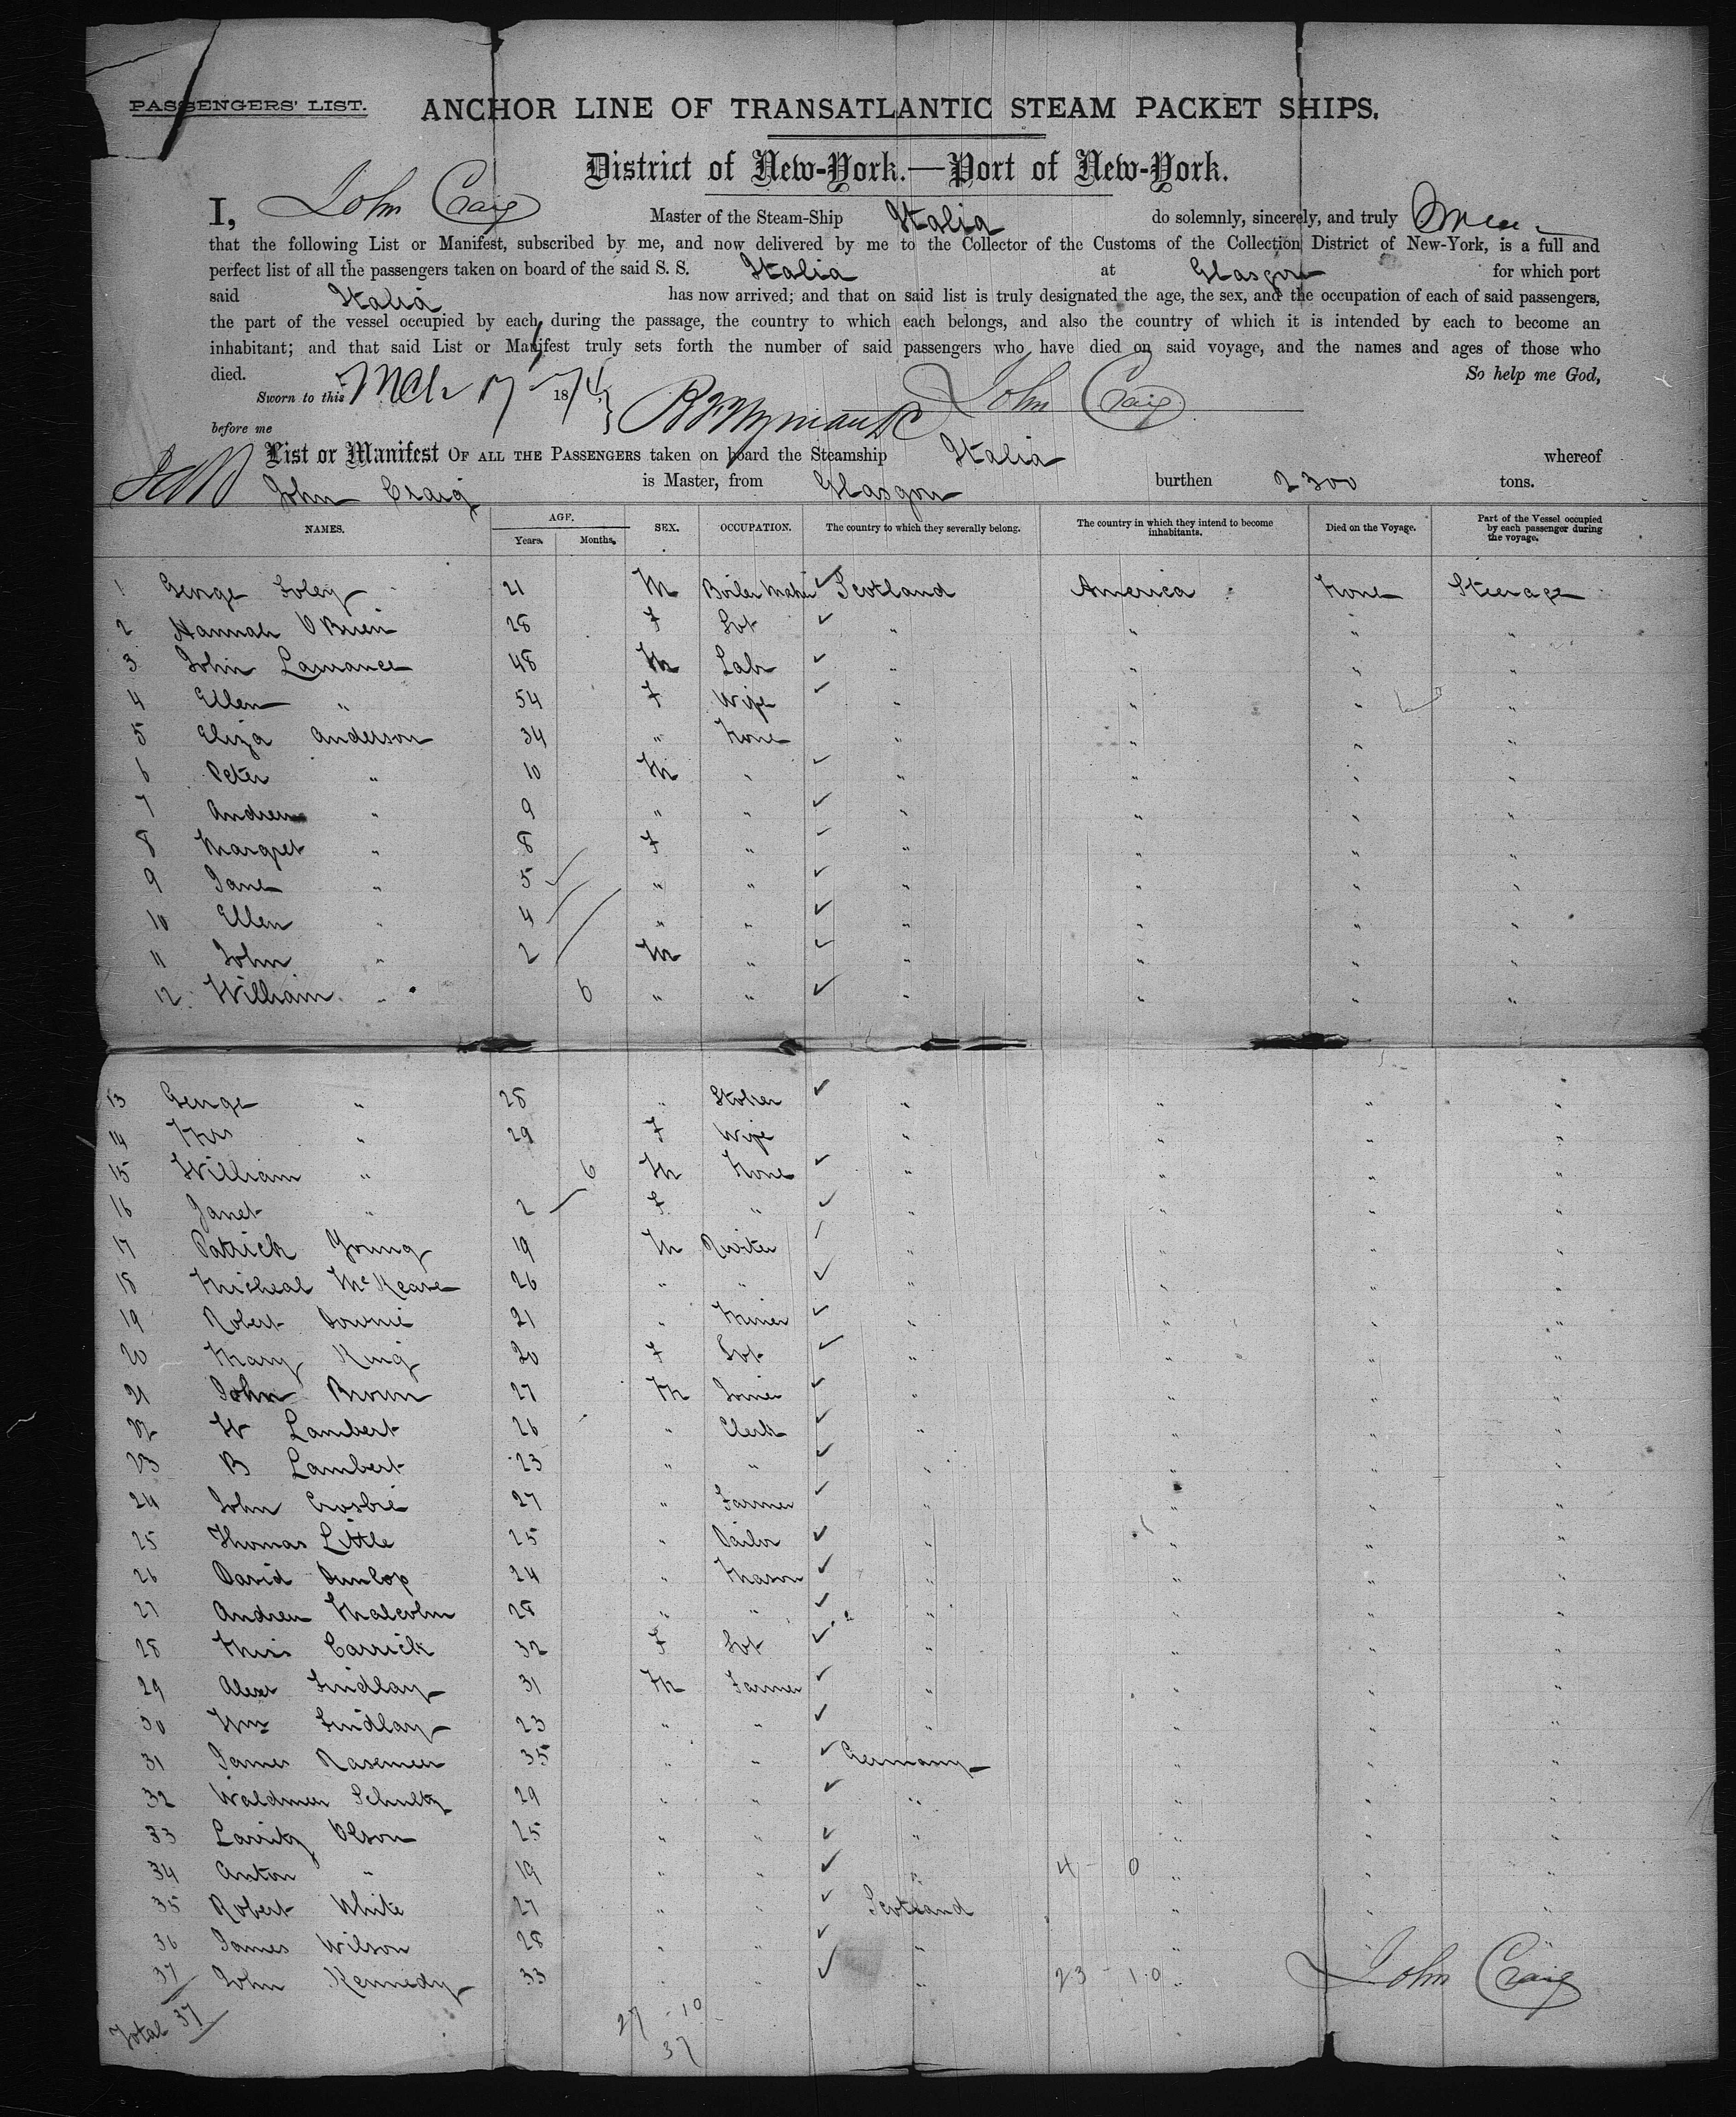 PASSENGERS' LIST.
ANCHOR LINE OF TRANSATLANTIC STEAM PACKET SHIPS.
District of New-York.—Port of New-York.
I, John Craig Master of the Steam-Ship Italia do solemnly, sincerely, and truly Swear
that the following List or Manifest, subscribed by me, and now delivered by me to the Collector of the Customs of the Collection District of New-York, is a full and
perfect list of all the passengers taken on board of the said S. S. Italia at Glasgow for which port
said Italia has now arrived; and that on said list is truly designated the age, the sex, and the occupation of each of said passengers,
the part of the vessel occupied by each during the passage, the country to which each belongs, and also the country of which it is intended by each to become an
inhabitant; and that said List or Manifest truly sets forth the number of said passengers who have died on said voyage, and the names and ages of those who
died. So help me God,
Sworn to this Mch 17 1874 John Craig
before me
List or Manifest OF ALL THE PASSENGERS taken on board the Steamship Italia whereof
John Craig is Master, from Glasgow burthen 2300 tons.
NAMES. AGE. Years. Months. SEX. OCCUPATION. The country to which they severally belong. The country in which they intend to become inhabitants. Died on the Voyage. Part of the Vessel occupied by each passenger during the voyage.
1 George Foley 21 M Boiler Maker Scotland America None Steerage
2 Hannah O'Brien 28 F Svt " " " "
3 John Lamance 48 M Labr " " " "
4 Ellen " 54 F Wife " " " "
5 Eliza Anderson 34 " None " " " "
6 Peter " 10 M " " " " "
7 Andrew " 9 " " " " " "
8 Margret " 8 F " " " " "
9 Jane " 5 " " " " " "
10 Ellen " 4 " " " " " "
11 John " 2 M " " " " "
12 William " 6 " " " " " "
13 George " 28 " Stoker " " " "
14 Mrs " 29 F Wife " " " "
15 William " 6 M None " " " "
16 Janet " 2 F " " " " "
17 Patrick Young 19 M Riviter " " " "
18 Micheal McKeane 26 " " " " " "
19 Robert Downie 21 " Miner " " " "
20 Mary King 20 F Svt " " " "
21 John Brown 27 M Joiner " " " "
22 W Lambert 26 " Clerk " " " "
23 B Lambert 23 " " " " " "
24 John Crosbie 27 " Farmer " " " "
25 Thomas Little 25 " Tailor " " " "
26 David Dunlop 24 " Mason " " " "
27 Andrew Malcolm 28 " " " " " "
28 Miss Carrick 32 F Svt " " " "
29 Alexr Lindlay 31 M Farmer " " " "
30 Wm Lindlay 23 " " " " " "
31 James Rasemeen 35 " " Germany " " "
32 Waldmer Schultz 29 " " " " " "
33 Larritz Olson 25 " " " " " "
34 Anton " 19 " " " 4 - 0 " " "
35 Robert White 27 " " Scotland " " "
36 James Wilson 28 " " " " " "
37 John Kennedy 33 " " " 23 - 10 "
John Craig
Total 37
27 - 10
37